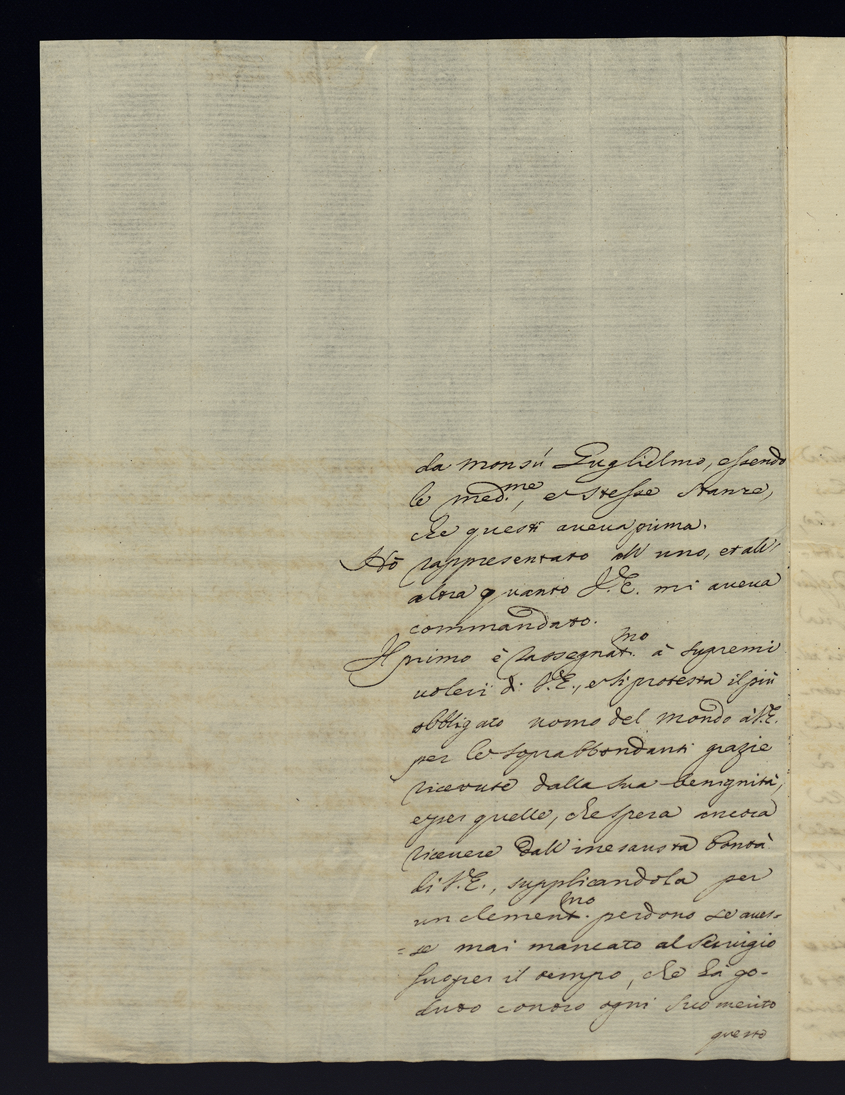 da monsù Guglielmo, essendo
le med.me, e stesse stanze,
che questi aveva prima.
Hò rappresentato all'uno, et all'
altra quanto V.E. mi aveva
commandato.
Il primo è rassegnat.mo à supremi
voleri di V.E., e si protesta il più
obbligato uomo del mondo à V.E.
per le soprabbondanti grazie
ricevute dalla sua benignità,
e per quelle, che spera ancora
ricevere dall'inesausta bontà
di V.E., supplicandola per
un clement.mo perdono se aves-
=se mai mancato al servigio
suo per il tempo, che hà go-
duto contro ogni suo merito
questo